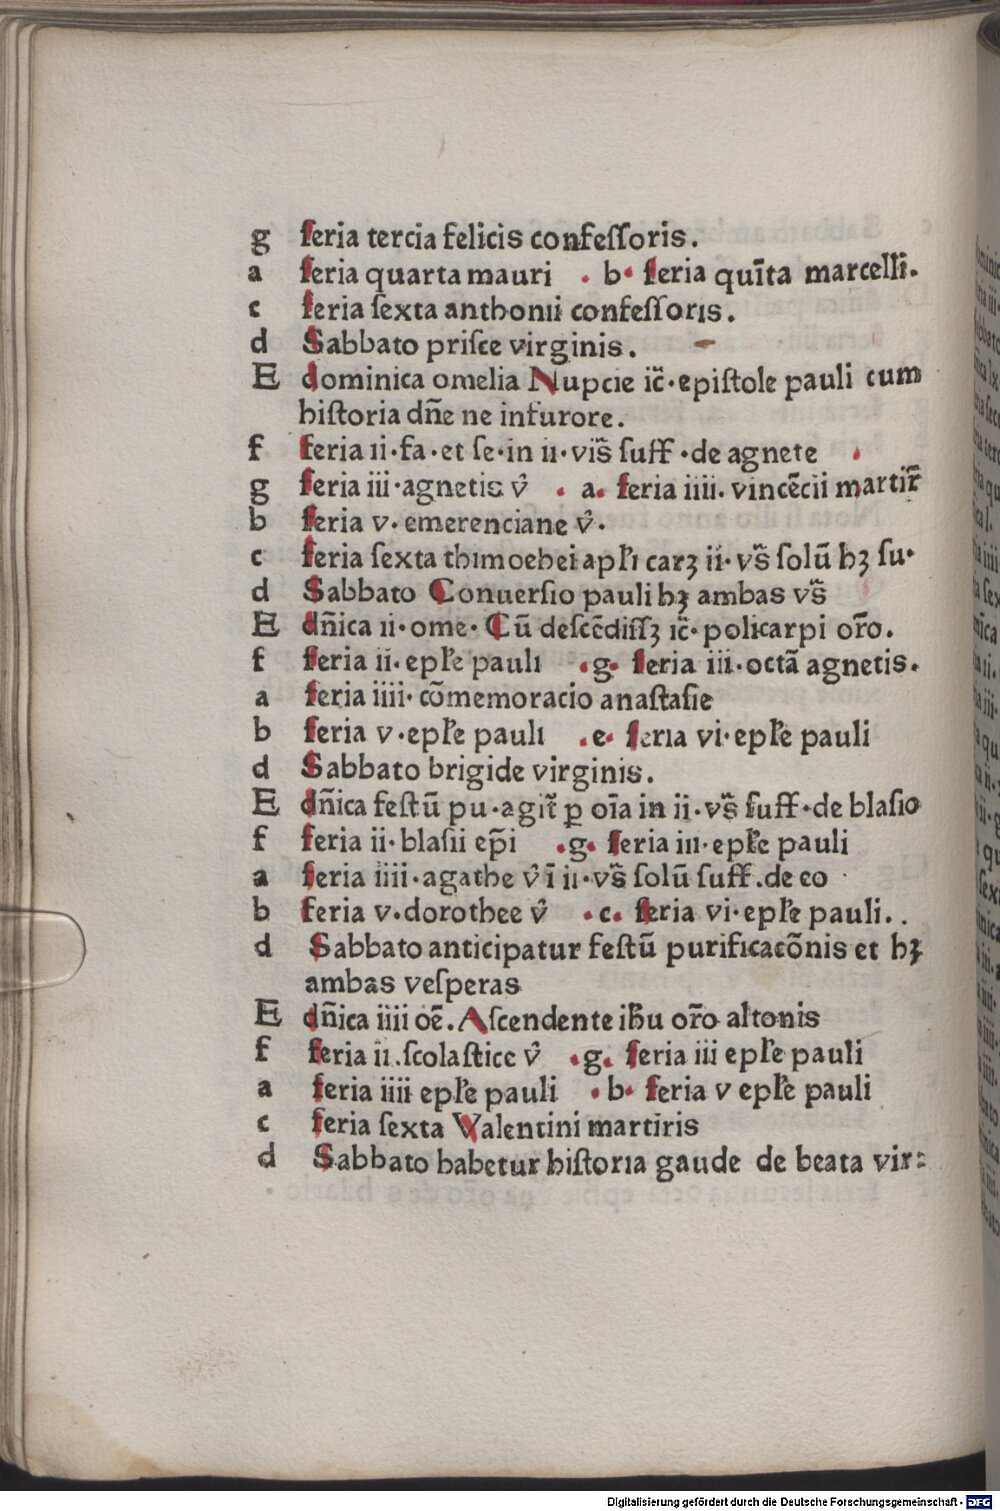 g feria tercia felicis confeſſoris.
a feria quarta mauri · b· feria quīta marcelli.
c feria ſexta anthonii confeſſoris.
d Sabbato priſce virginis.
E dominica omelia Nupcie ic̄·epiſtole pauli cum
hiſtoria dn̄e ne infurore.
f feria ii·fa·et ſe·in ii·viſ̄ ſuff·de agnete
g feria iii·agnetis v̄ · a. feria iiii. vincēcii martir̄
b feria v. emerenciane v̄.
c feria ſexta thimoehei apl̄i carꝫ ii·vſ̄ ſolū hꝫ ſu·
d Sabbato Conuerſio pauli hꝫ ambas vſ̄
E dn̄ica ii·ome·Cū deſcēdiſſꝫ ic̄·policarpi or̄o.
f feria ii·epl̄e pauli ·g· feria iii·octā agnetis.
a feria iiii·cōmemoracio anaſtaſie
b feria v·epl̄e pauli .e· feria vi·epl̄e pauli
d Sabbato brigide virginis.
E dn̄ica feſtū pu·agit̄ ꝑ oīa in ii·vſ̄ ſuff·de blaſio
f feria ii·blaſii ep̄i .g· feria iii·epl̄e pauli
a feria iiii·agathe v̄ ī ii·vſ̄ ſolū ſuff.de eo
b feria v.dorothee v̄ ·c. feria vi·epl̄e pauli..
d Sabbato anticipatur feſtū purificacōnis et hꝫ
ambas veſperas
E dn̄ica iiii oē.Aſcendente ih̄u or̄o altonis
f feria ii.ſcolaſtice v̄ ·g. feria iii epl̄e pauli
a feria iiii epl̄e pauli ·b· feria v epl̄e pauli
c feria ſexta Valentini martiris
d Sabbato habetur hiſtoria gaude de beata vir⸗
Digitalisierung gefördert durch die Deutsche Forschungsgemeinschaft - DFG